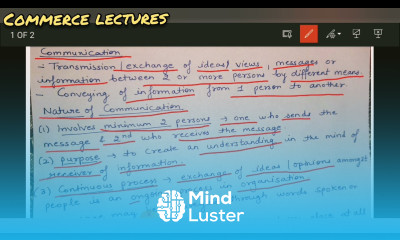 COMMERCE LECTURES
1 OF 2
Communication
- Transmission/exchange of ideas/views, messages or
information between 2 or more persons by different means.
- Conveying of information from 1 person to another
Nature of Communication
(1) Involves minimum 2 persons → one who sends the
message & 2nd who receives the message.
(2) purpose → to create an understanding in the mind of
receiver of information.
(3) Continuous process → exchange of ideas/opinions amongst
people is an ongoing process in organisation
through words spoken or
may
at all
Mind
Luster